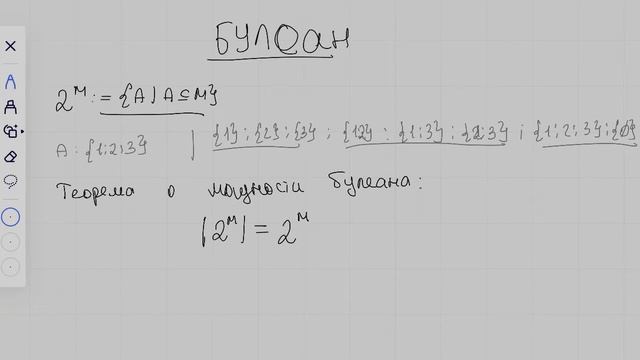 БУЛЕАН
2^м := {A | A ⊆ M}
A: {1;2;3} | {1}; {2}; {3}; {1;2} ; {1;3} ; {2;3} ; {1;2;3}; {∅}
Теорема о мощности булеана:
|2^м| = 2^м